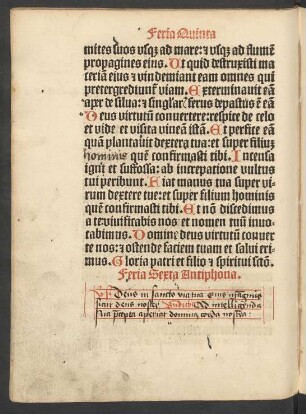 Feria Quinta
mites suos vsqꝫ ad mare: ⁊ vsqꝫ ad flumē
propagines eius. Ut quid destruxisti ma
ceriā eius ⁊ vindemiant eam omnes qui
pretergrediunt͛ viam. Exterminauit eā
aper de silua: ⁊ singular͛ ferus depastus ē eā
Deus virtutū conuertere: respice de celo
et vide et visita vineā istā. Et perfice eā
quā plantauit dextera tua: et super filiuʒ
hominis quē confirmasti tibi. Incensa
igni et suffossa: ab increpatione vultus
tui peribunt. Fiat manus tua super vi
rum dextere tue: et super filium hominis
quē confirmasti tibi. Et nō discedimus
a te viuificabis nos: et nomen tuū inuo
cabimus. Domine deus virtutū conuer
te nos: ⁊ ostende faciem tuam et salui eri
mus. Gloria patri et filio ⁊ spiritui sctō.
Feria Sexta Antiphona.
Deus in sancto via tua quis magnus
sicut deus noster Ad intelligenda
p̄cepta aperiat dominus corda nostra